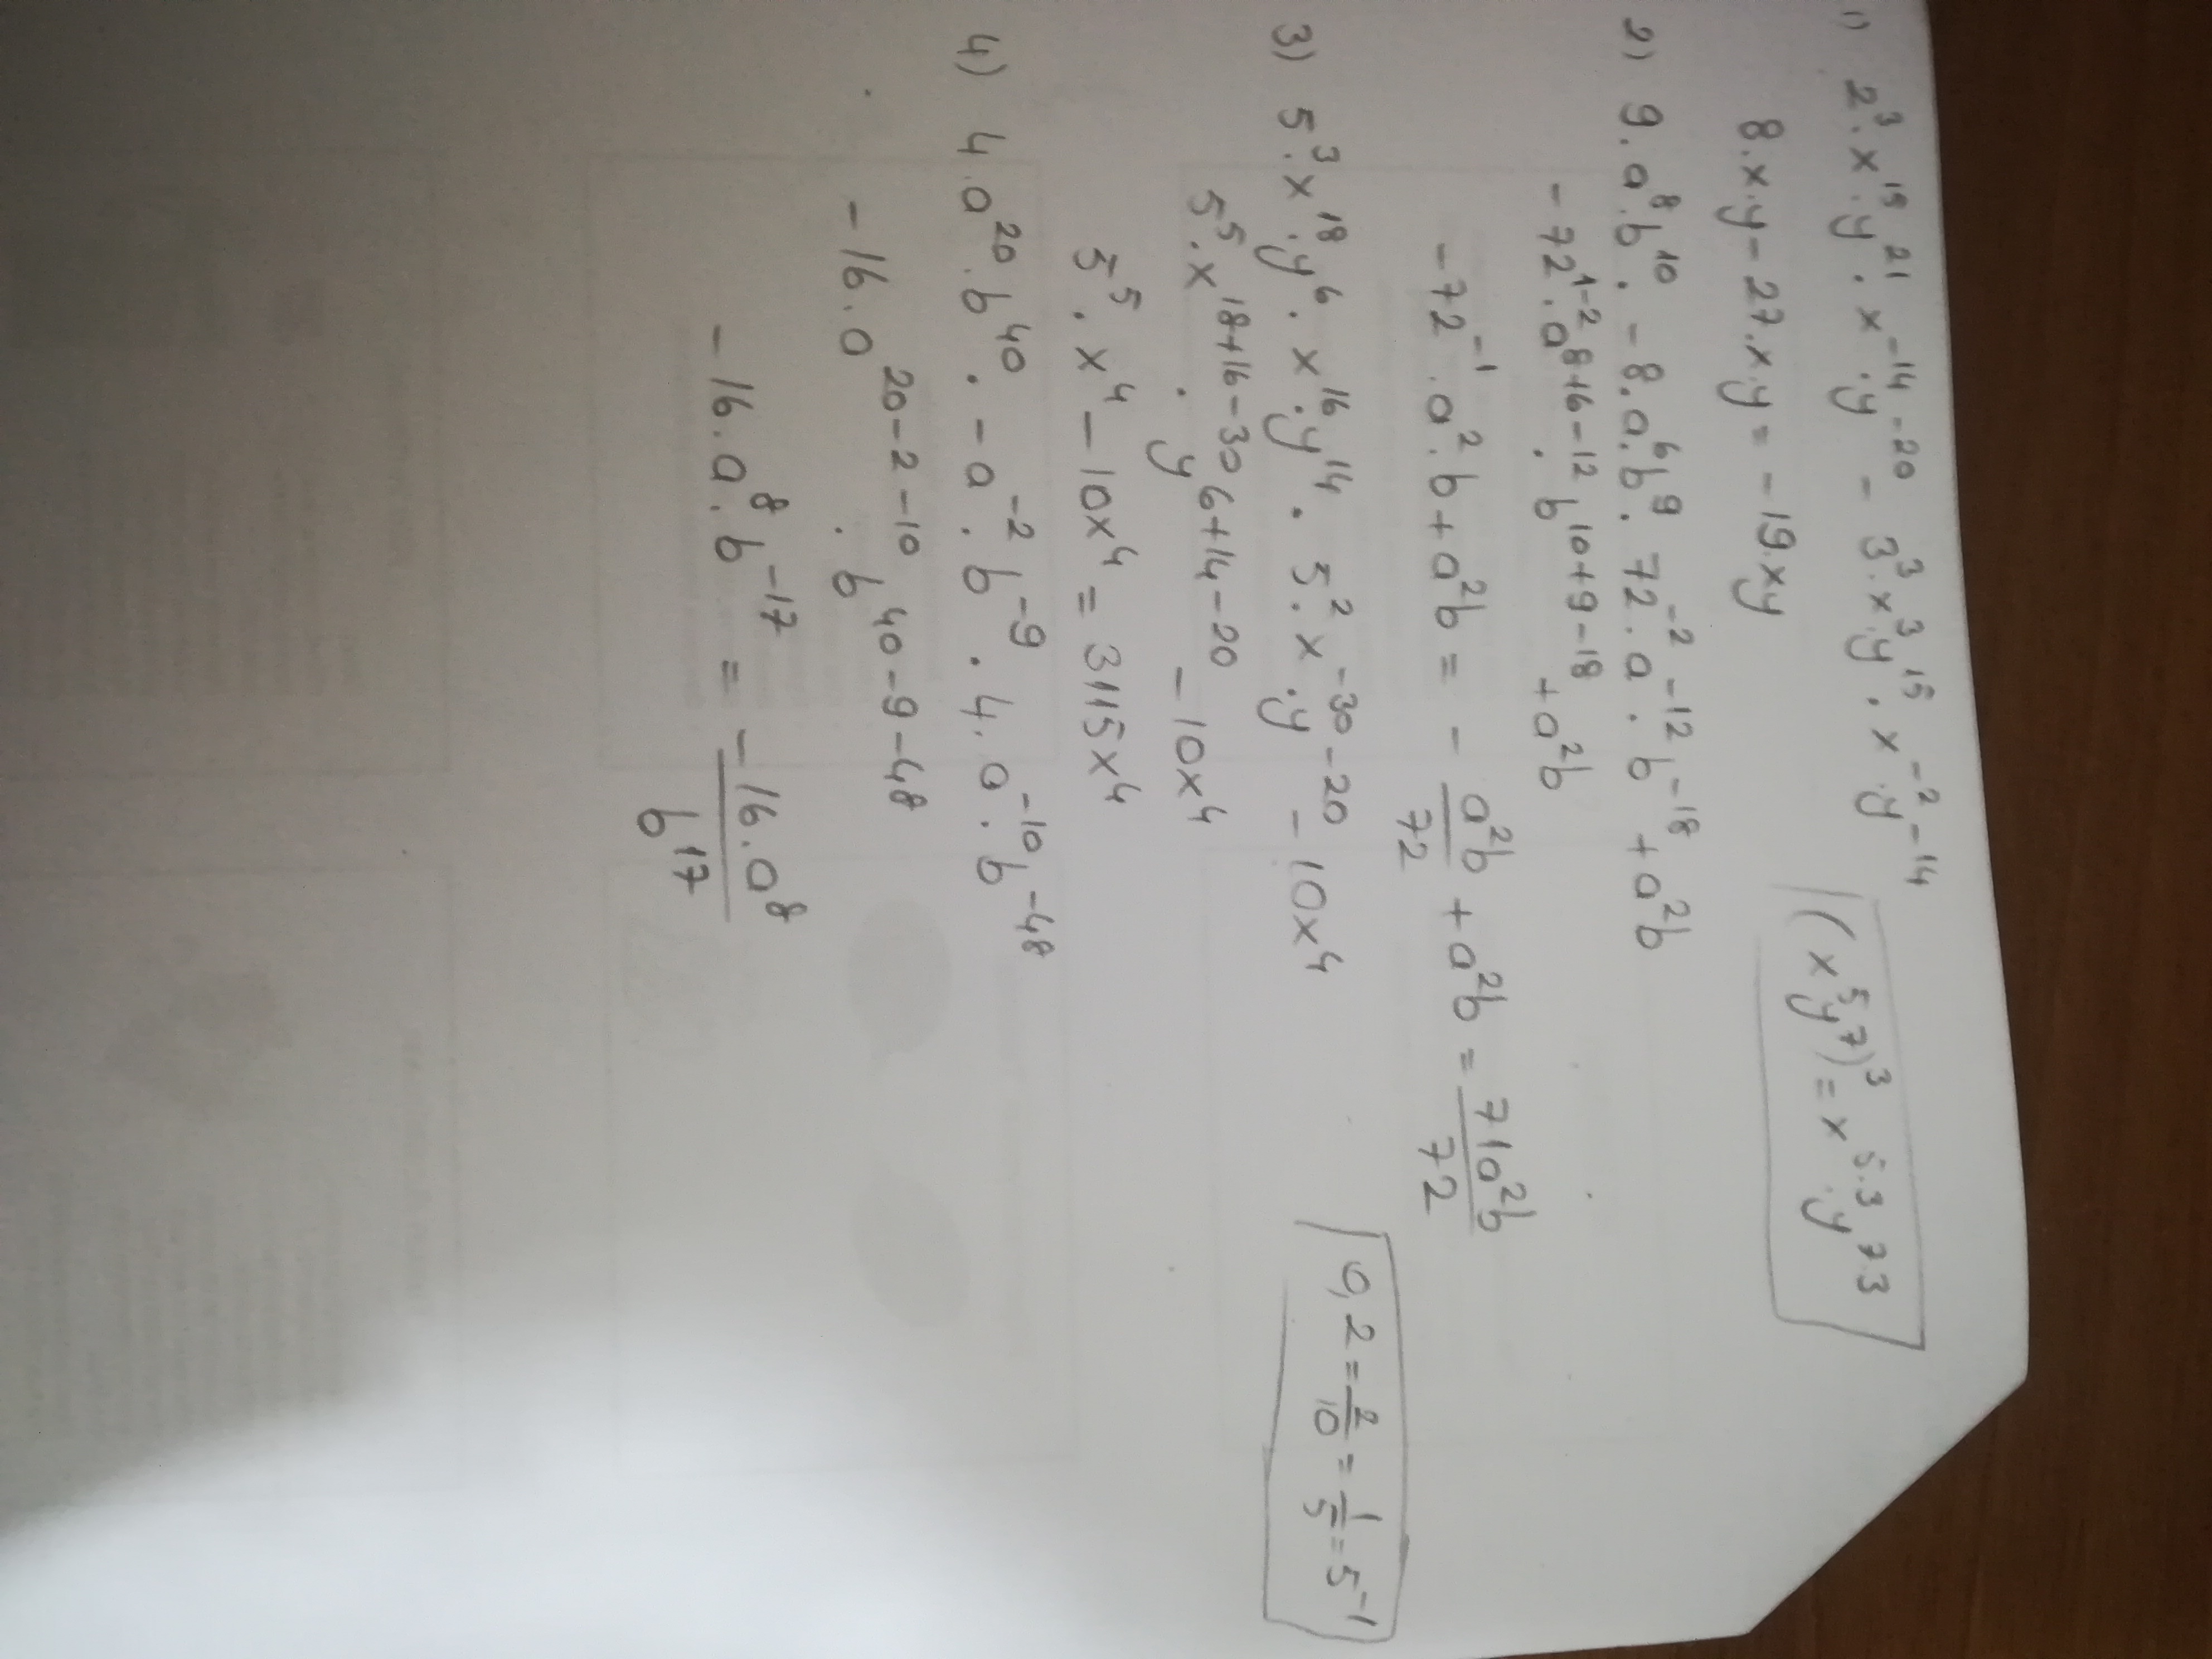 1) 2³.x¹⁵.y²¹.x⁻¹⁴.y⁻²⁰ - 3³.x³.y¹⁵.x⁻².y⁻¹⁴
(x⁵y⁷)³=x⁵·³.y⁷·³
8.x.y-27.x.y=-19.xy
2) 9.a⁸.b¹⁰.-8.a⁶.b⁹.72⁻².a⁻¹².b⁻¹⁸+a²b
-72¹⁻².a⁸⁺¹⁶⁻¹².b¹⁰⁺⁹⁻¹⁸+a²b
-72⁻¹.a².b+a²b=-a²b/72+a²b=71a²b/72
3) 5³.x¹⁸.y⁶.x¹⁶.y¹⁴.5².x⁻³⁰.y⁻²⁰-10x⁴
0,2=2/10=1/5=5⁻¹
5⁵.x¹⁸⁺¹⁶⁻³⁰.y⁶⁺¹⁴⁻²⁰-10x⁴
5⁵.x⁴-10x⁴=3115x⁴
4) 4.a²⁰.b⁴⁰.-a⁻².b⁻⁹.4.a⁻¹⁰.b⁻⁴⁸
-16.a²⁰⁻²⁻¹⁰.b⁴⁰⁻⁹⁻⁴⁸
-16.a⁸.b⁻¹⁷=-16.a⁸/b¹⁷